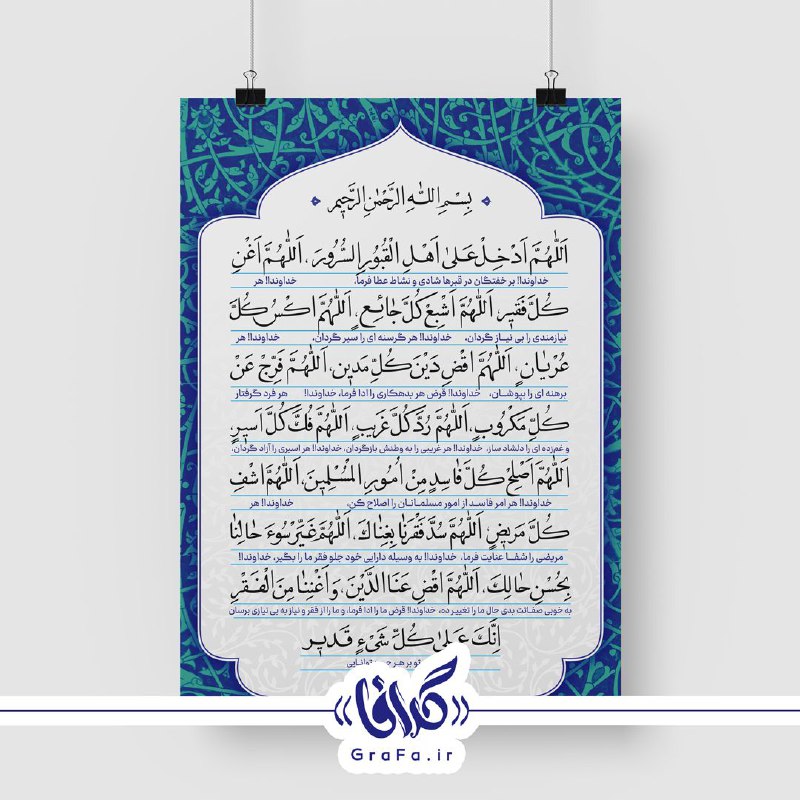 بِسْمِ اللّٰهِ الرَّحْمٰنِ الرَّحِيمِ
اَللّٰهُمَّ اَدْخِلْ عَلىٰ اَهْلِ الْقُبُورِ السُّرُورَ، اَللّٰهُمَّ اَغْنِ
خداوندا! بر خفتگان در قبرها شادی و نشاط عطا فرما، خداوندا! هر
كُلَّ فَقِيرٍ، اَللّٰهُمَّ اَشْبِعْ كُلَّ جٰائِعٍ، اَللّٰهُمَّ اكْسُ كُلَّ
نیازمندی را بی نیاز گردان، خداوندا! هر گرسنه ای را سیر گردان، خداوندا! هر
عُرْيٰانٍ، اَللّٰهُمَّ اقْضِ دَيْنَ كُلِّ مَدِينٍ، اَللّٰهُمَّ فَرِّجْ عَنْ
برهنه ای را بپوشان، خداوندا! قرض هر بدهکاری را ادا فرما، خداوندا! هر فرد گرفتار
كُلِّ مَكْرُوبٍ، اَللّٰهُمَّ رُدَّ كُلَّ غَرِيبٍ، اَللّٰهُمَّ فُكَّ كُلَّ اَسِيرٍ
و غم‌زده ای را دلشاد ساز، خداوندا! هر غریبی را به وطنش بازگردان، خداوندا! هر اسیری را آزاد گردان،
اَللّٰهُمَّ اَصْلِحْ كُلَّ فٰاسِدٍ مِنْ اُمُورِ الْمُسْلِمِينَ، اَللّٰهُمَّ اشْفِ
خداوندا! هر امر فاسد از امور مسلمانان را اصلاح کن، خداوندا! هر
كُلَّ مَرِيضٍ اَللّٰهُمَّ سُدَّ فَقْرَنٰا بِغِنٰاكَ، اَللّٰهُمَّ غَيِّرْ سُوءَ حٰالِنٰا
مریضی را شفا عنایت فرما، خداوندا! به وسیله دارایی خود جلو فقر ما را بگیر، خداوندا!
بِحُسْنِ حٰالِكَ، اَللّٰهُمَّ اقْضِ عَنَّا الدَّيْنَ، وَ اَغْنِنٰا مِنَ الْفَقْرِ
به خوبی صفاتت بدی حال ما را تغییر ده، خداوندا! قرض ما را ادا فرما، و ما را از فقر و نیاز به بی نیازی برسان
اِنَّكَ عَلىٰ كُلِّ شَيْءٍ قَدِيرٌ
تو بر هر توانایی
گرافا
GraFa.ir